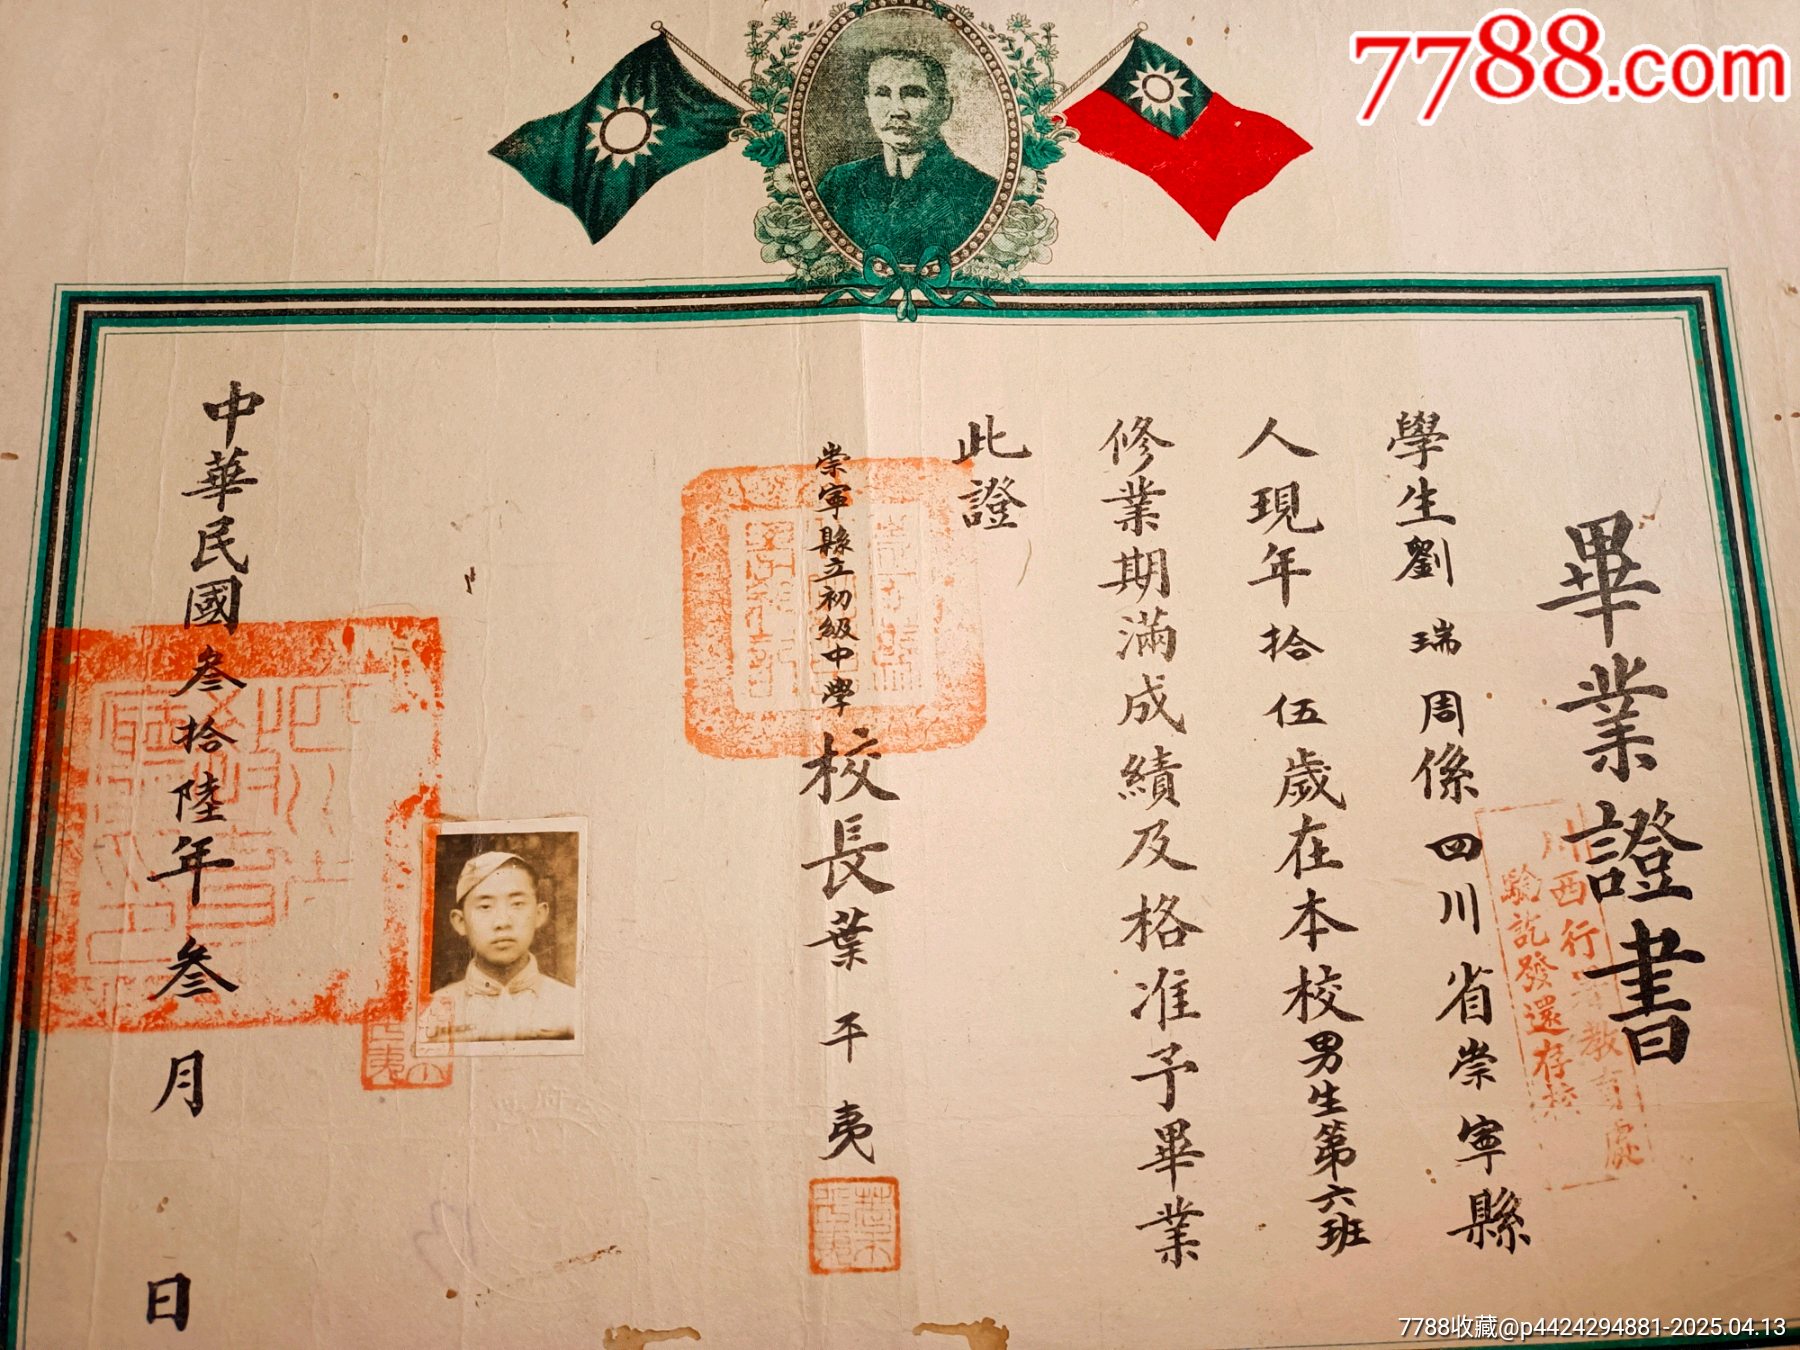 7788.com
畢業證書
學生劉瑞周係四川省崇寧縣
人現年拾伍歲在本校男生第六班
修業期滿成績及格准予畢業
此證
崇寧縣立初級中學校長葉平夷
中華民國叁拾陸年叁月 日
川西行署教育處
驗訖發還存校
7788收藏@p4424294881-2025.04.13